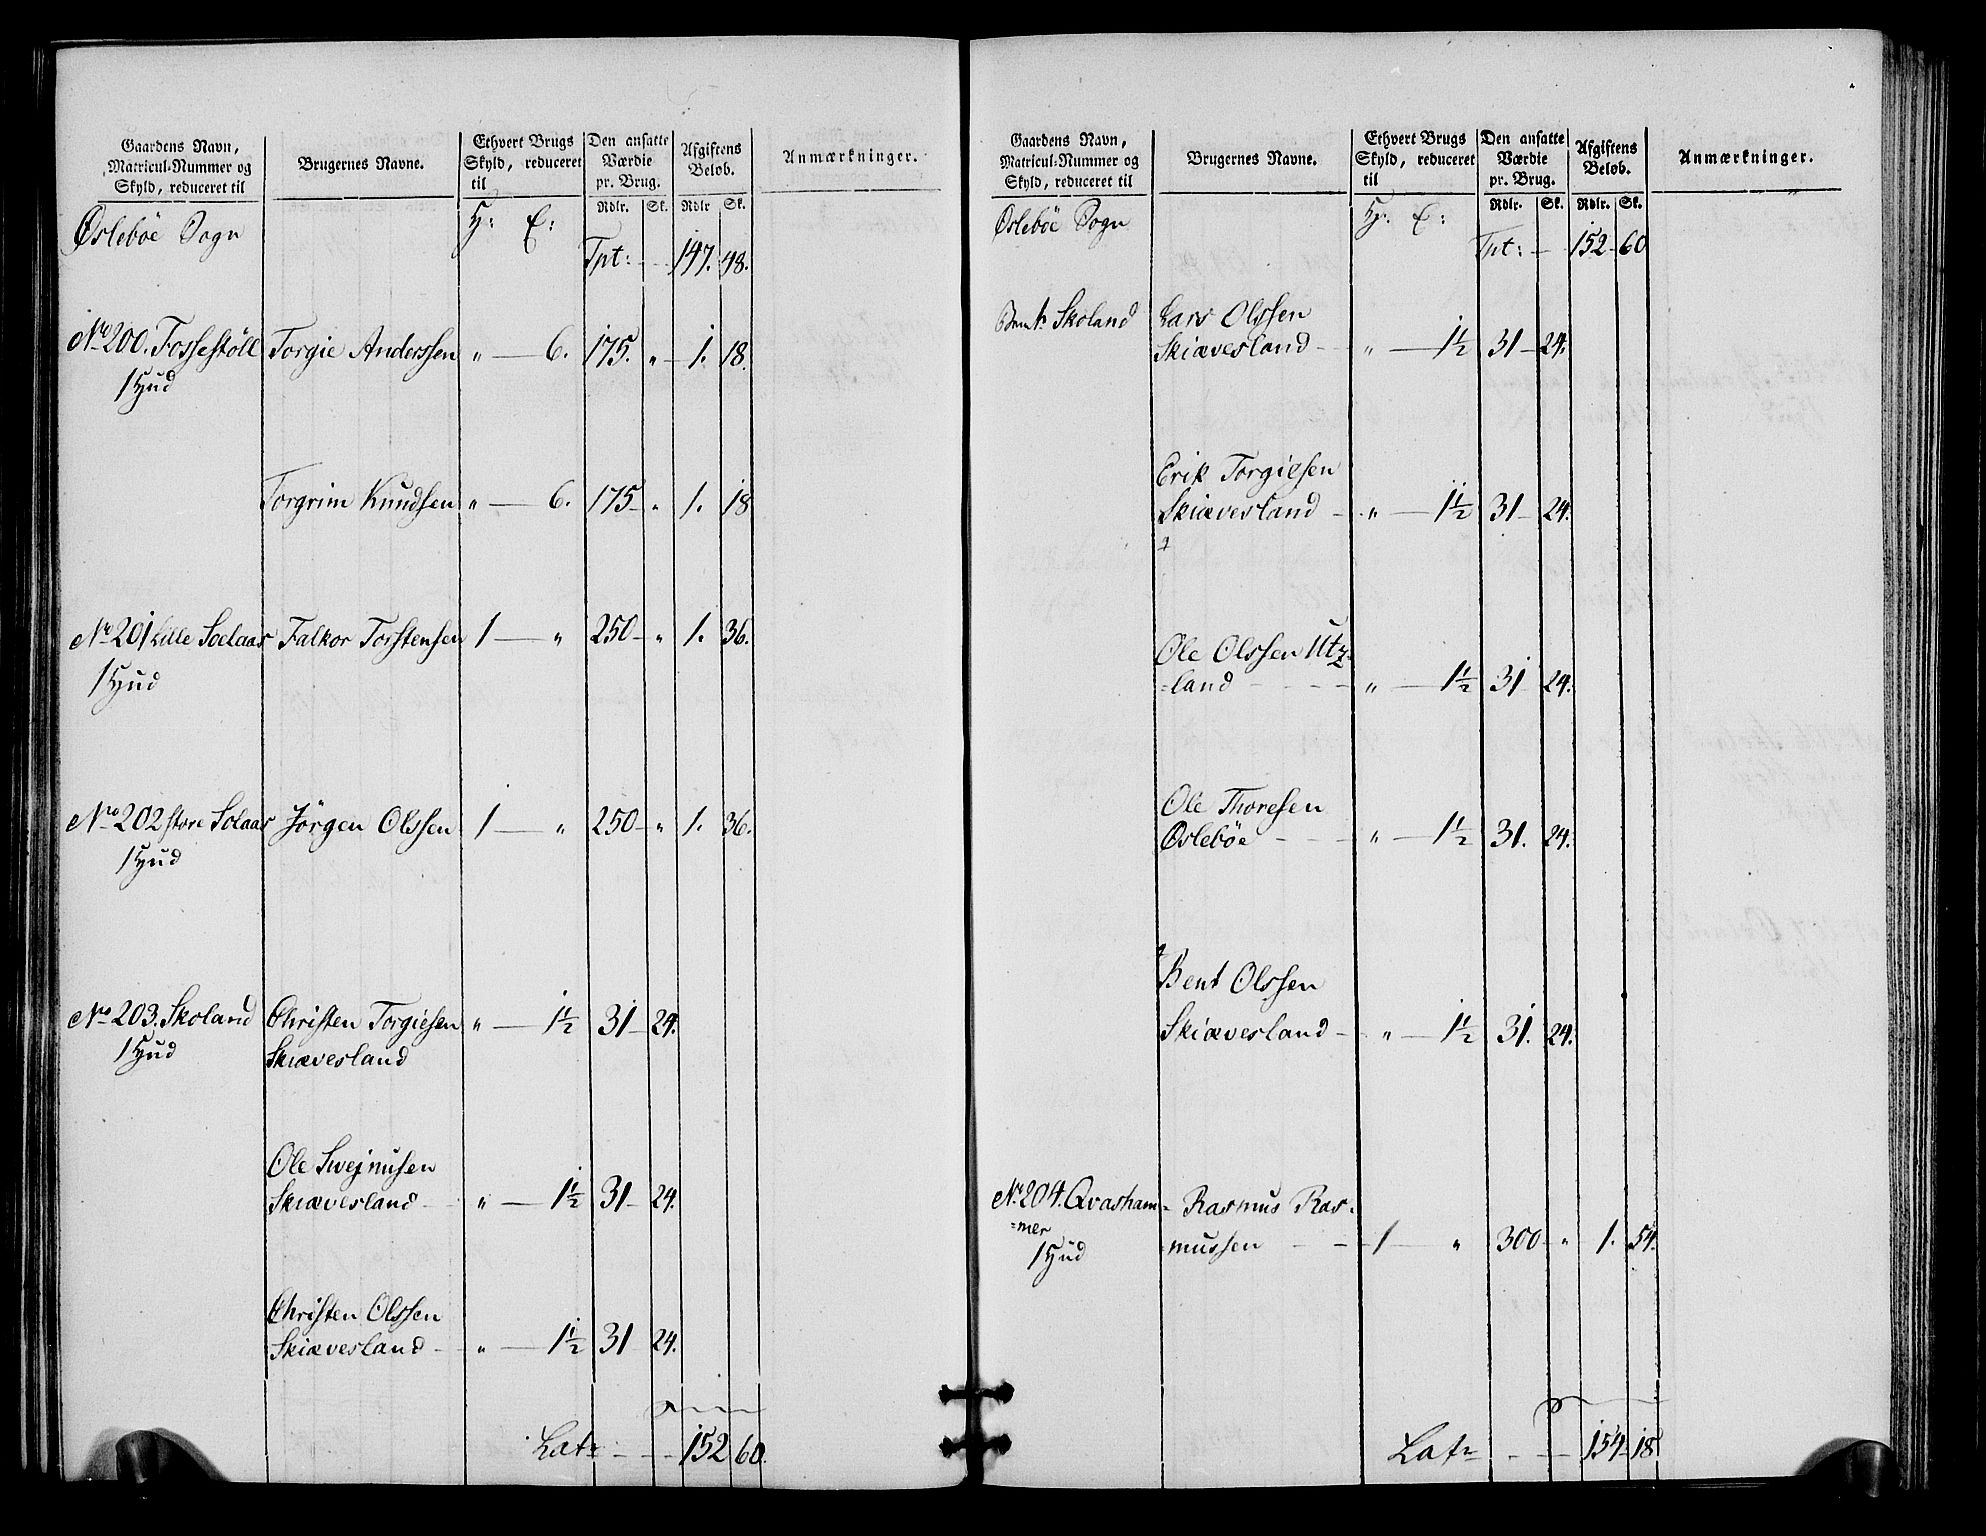 Gaardens Navn, Matricul-Nummer og Skyld, reduceret til | Brugernes Navne. | Ethvert Brugs Skyld, reduceret til | Den ansatte Værdie pr. Brug. | Afgiftens Beløb. | Anmærkninger.
Rdlr. Sk. Rdlr Sk.
Øslebõe Sogn
Tpt: — 147. 48.
No 200. Fossestøll Torgie Anderssen „ — 6. 175. „ 1. 18.
1 Hud
Torgrim Knudsen „ — 6. 175 „ 1. 18
No 201 Lille Soelaas Falkor Torstensen 1 — „ 250 „ 1. 36.
1 Hud
No 202 store Solaas Jörgen Olssen 1 — „ 250 „ 1. 36.
1 Hud
No 203. Skoland Christen Torgiesen „ — 1½ 31 24.
1 Hud Skiævesland
Ole Swejnusen
Skiævesland „ — 1½ 31 24.
Christen Olssen
Skiævesland „ — 1½ 31 24.
Lat: — 152 60.
Gaardens Navn, Matricul-Nummer og Skyld, reduceret til | Brugernes Navne. | Ethvert Brugs Skyld, reduceret til | Den ansatte Værdie pr. Brug. | Afgiftens Beløb. | Anmærkninger.
Rdlr. Sk. Rdlr. Sk.
Øslebõe Sogn
Tpt: — 152 60
Skoland Lars Olssen
Skiævesland „ — 1½ 31 24.
Erik Torgiesen
Skiævesland „ — 1½ 31 24.
Ole Olssen Utz-
=land „ — 1½ 31 24.
Ole Thoresen
Øslebõe „ — 1½ 31. 24.
Bent Olssen
Skiævesland „ — 1½ 31. 24.
No 204. Qvasham= Rasmus Ras-
=mer =mussen 1 — „ 300 „ 1. 54.
1 Hud
Lat: — 154 18